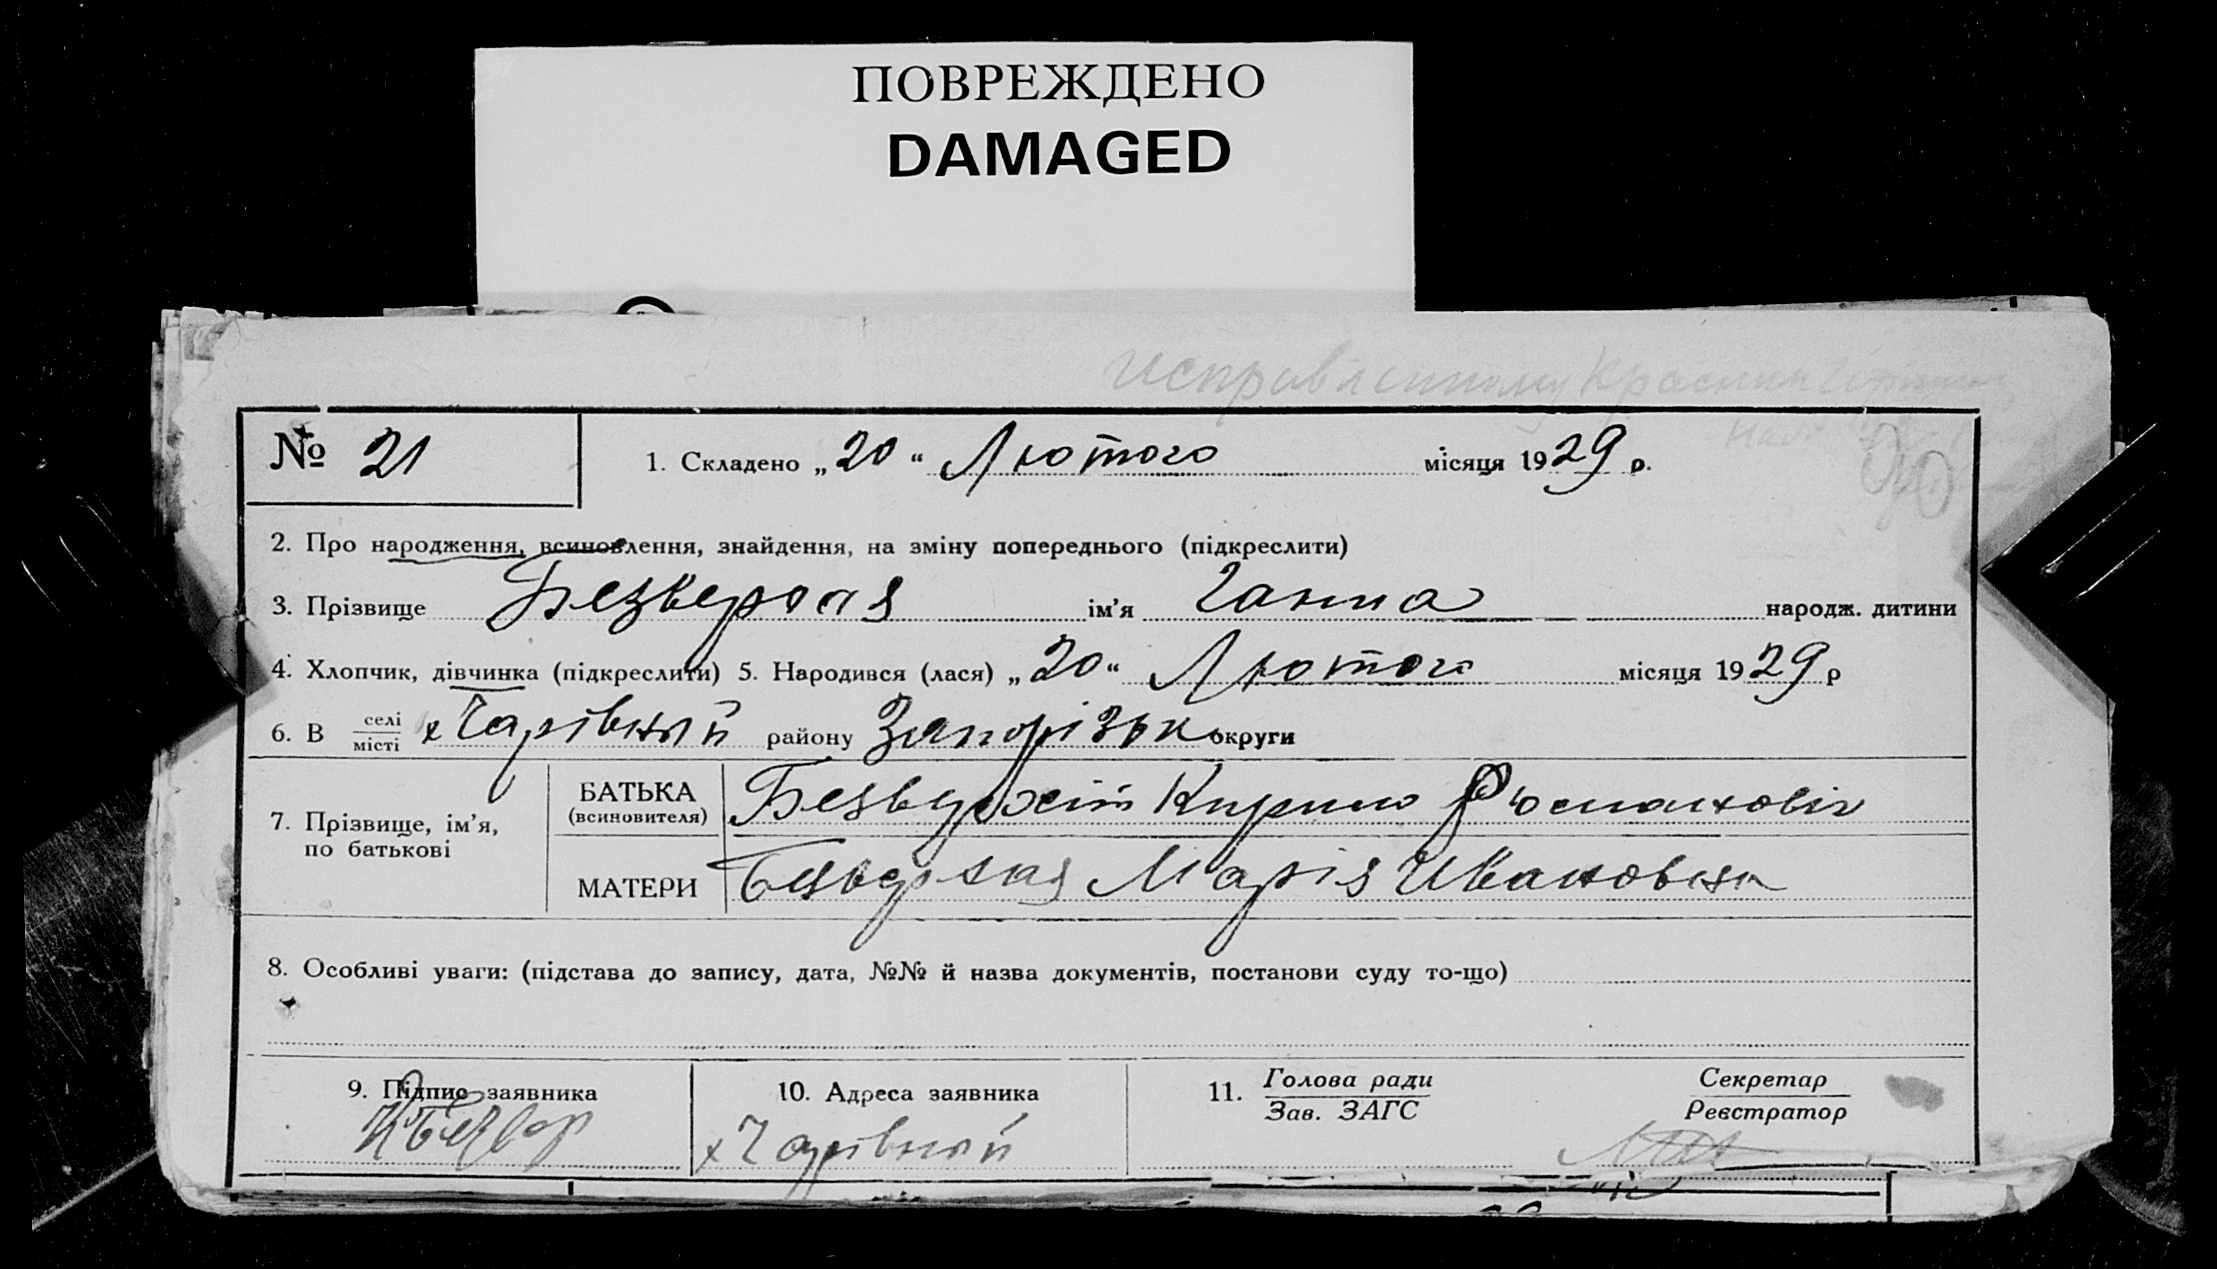 ПОВРЕЖДЕНО
DAMAGED
№ 21
1. Складено „20“ Лютого місяця 1929 р.
2. Про народження, всиновлення, знайдення, на зміну попереднього (підкреслити)
3. Прізвище ім’я Ганна народж. дитини
4. Хлопчик, дівчинка (підкреслити) 5. Народився (лася) „20“ Лютого місяця 1929 р
6. В селі місті х Чарівный району Запорізьк округи
7. Прізвище, ім’я, по батькові
БАТЬКА (всиновителя) Кирило
МАТЕРИ Марія Ивановна
8. Особливі уваги: (підстава до запису, дата, №№ й назва документів, постанови суду то-що)
9. Підпис заявника
10. Адреса заявника
х Чарівный
11. Голова ради
Зав. ЗАГС
Секретар
Реєстратор